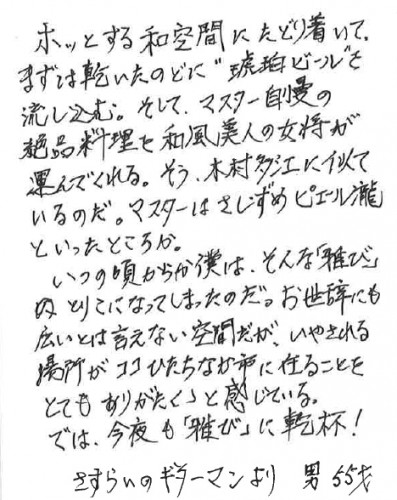 ホッとする和空間にたどり着いて、
まずは乾いたのどに"琥珀ビール"を
流し込む。そして、マスター自慢の
絶品料理を和風美人の女将が
運んでくれる。そう、木村多江に似て
いるのだ。マスターはさしずめピエール瀧
といったところか。
いつの頃からか僕は、そんな「雅び」
のとりこになってしまったのだ。お世辞にも
広いとは言えない空間だが、いやされる
場所がココひたちなか市に在ることを
とてもありがたく、と感じている。
では、今夜も「雅び」に乾杯!
さすらいのギターマンより 男 55才